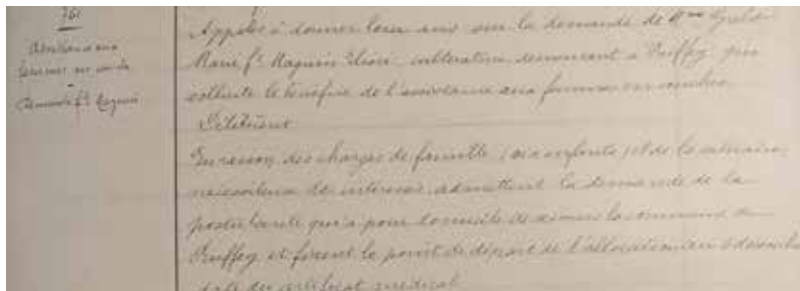 761
Assistance aux
femmes en couches
Demande fe Raquin
Appelés à donner leur avis sur la demande de Mme
Marie fe Raquin Elisée, cultivatrice demeurant à Ruffey qui
sollicite le bénéfice de l'assistance aux femmes en couches
Délibèrent
En raison des charges de famille (six enfants) et de la situation
nécessiteuse de intéressée, admettent la demande de la
postulante qui a pour domicile de secours la commune de
Ruffey et fixent le point de départ de l'allocation au décembre
date du certificat médical